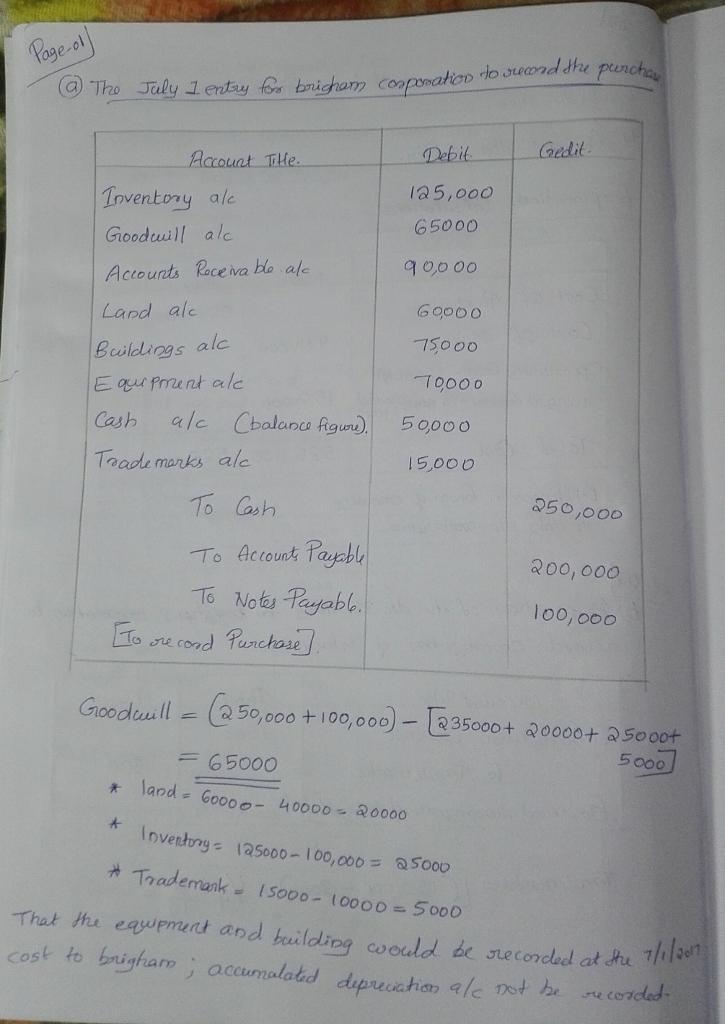 Page-01
(a) The July 1 entry for brigham corporation to record the purchase
Account Title. Debit Credit.
Inventory a/c 125,000
Goodwill a/c 65000
Accounts Receivable a/c 90,000
Land a/c 60,000
Buildings a/c 75,000
Equipment a/c 70,000
Cash a/c (balance figure). 50,000
Trademarks a/c 15,000
To Cash 250,000
To Accounts Payable 200,000
To Notes Payable. 100,000
[To record Purchase]
Goodwill = (250,000 + 100,000) - [235000 + 20000 + 25000+
5000]
= 65000
* land = 60000 - 40000 = 20000
* Inventory = 125000 - 100,000 = 25000
* Trademark = 15000 - 10000 = 5000
That the equipment and building would be recorded at the 7/1/2017
cost to brigham ; accumalated depreciation a/c not be recorded.